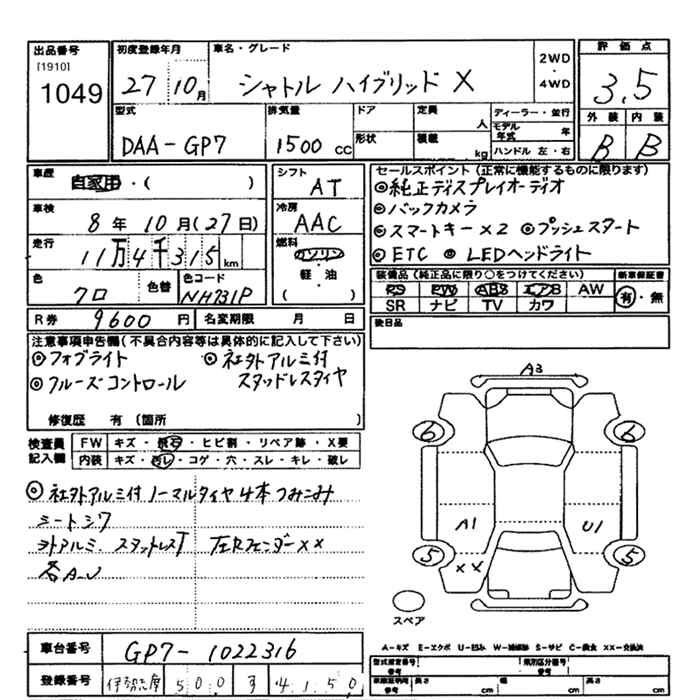 出品番号 [1910] 1049
初度登録年月 27 10月
車名・グレード シャトル ハイブリッド X
2WD・4WD
評価点 3.5
型式 DAA-GP7
排気量 1500 cc
ドア
形状
定員 人
積載 kg
ディーラー・並行
モデル年式 年
ハンドル 左・右
外装 B
内装 B
車歴 自家用・( )
シフト AT
車検 8年10月(27日)
冷房 AAC
走行 11万4千315km
燃料 ガソリン・軽・油 ( )
色 クロ
色替
色コード NH731P
R券 9600円
名変期限 月 日
セールスポイント (正常に機能するものに限ります)
◎純正ディスプレイオーディオ
◎バックカメラ
◎スマートキー×2 ◎プッシュスタート
◎ETC ◎LEDヘッドライト
装備品(純正品に限り○をつけてください)
PS PW ABS エアB AW
SR ナビ TV カワ
新車保証書
有・無
後日品
注意事項申告欄(不具合内容等は具体的に記入して下さい)
◎フォグライト ◎社外アルミ付
◎クルーズコントロール スタッドレスタイヤ
修復歴 有(箇所 )
検査員記入欄
FW キズ・飛石・ヒビ割・リペア跡・X要
内装 キズ・汚レ・コゲ・穴・スレ・キレ・破レ
◎社外アルミ付ノーマルタイヤ4本つみこみ
シートシワ
外アルミ スタットレスT 左Rフェンダー××
各A・U
A3
6 6
A1 U1
5 5
××
スペア
車台番号 GP7-1022316
登録番号 伊勢志摩 500 す 4150
A-キズ E-エクボ U-凹み W-補修跡 S-サビ C-腐食 XX-交換済
型式指定番号 類別区分番号
参考 長さ cm 幅 cm 高さ cm